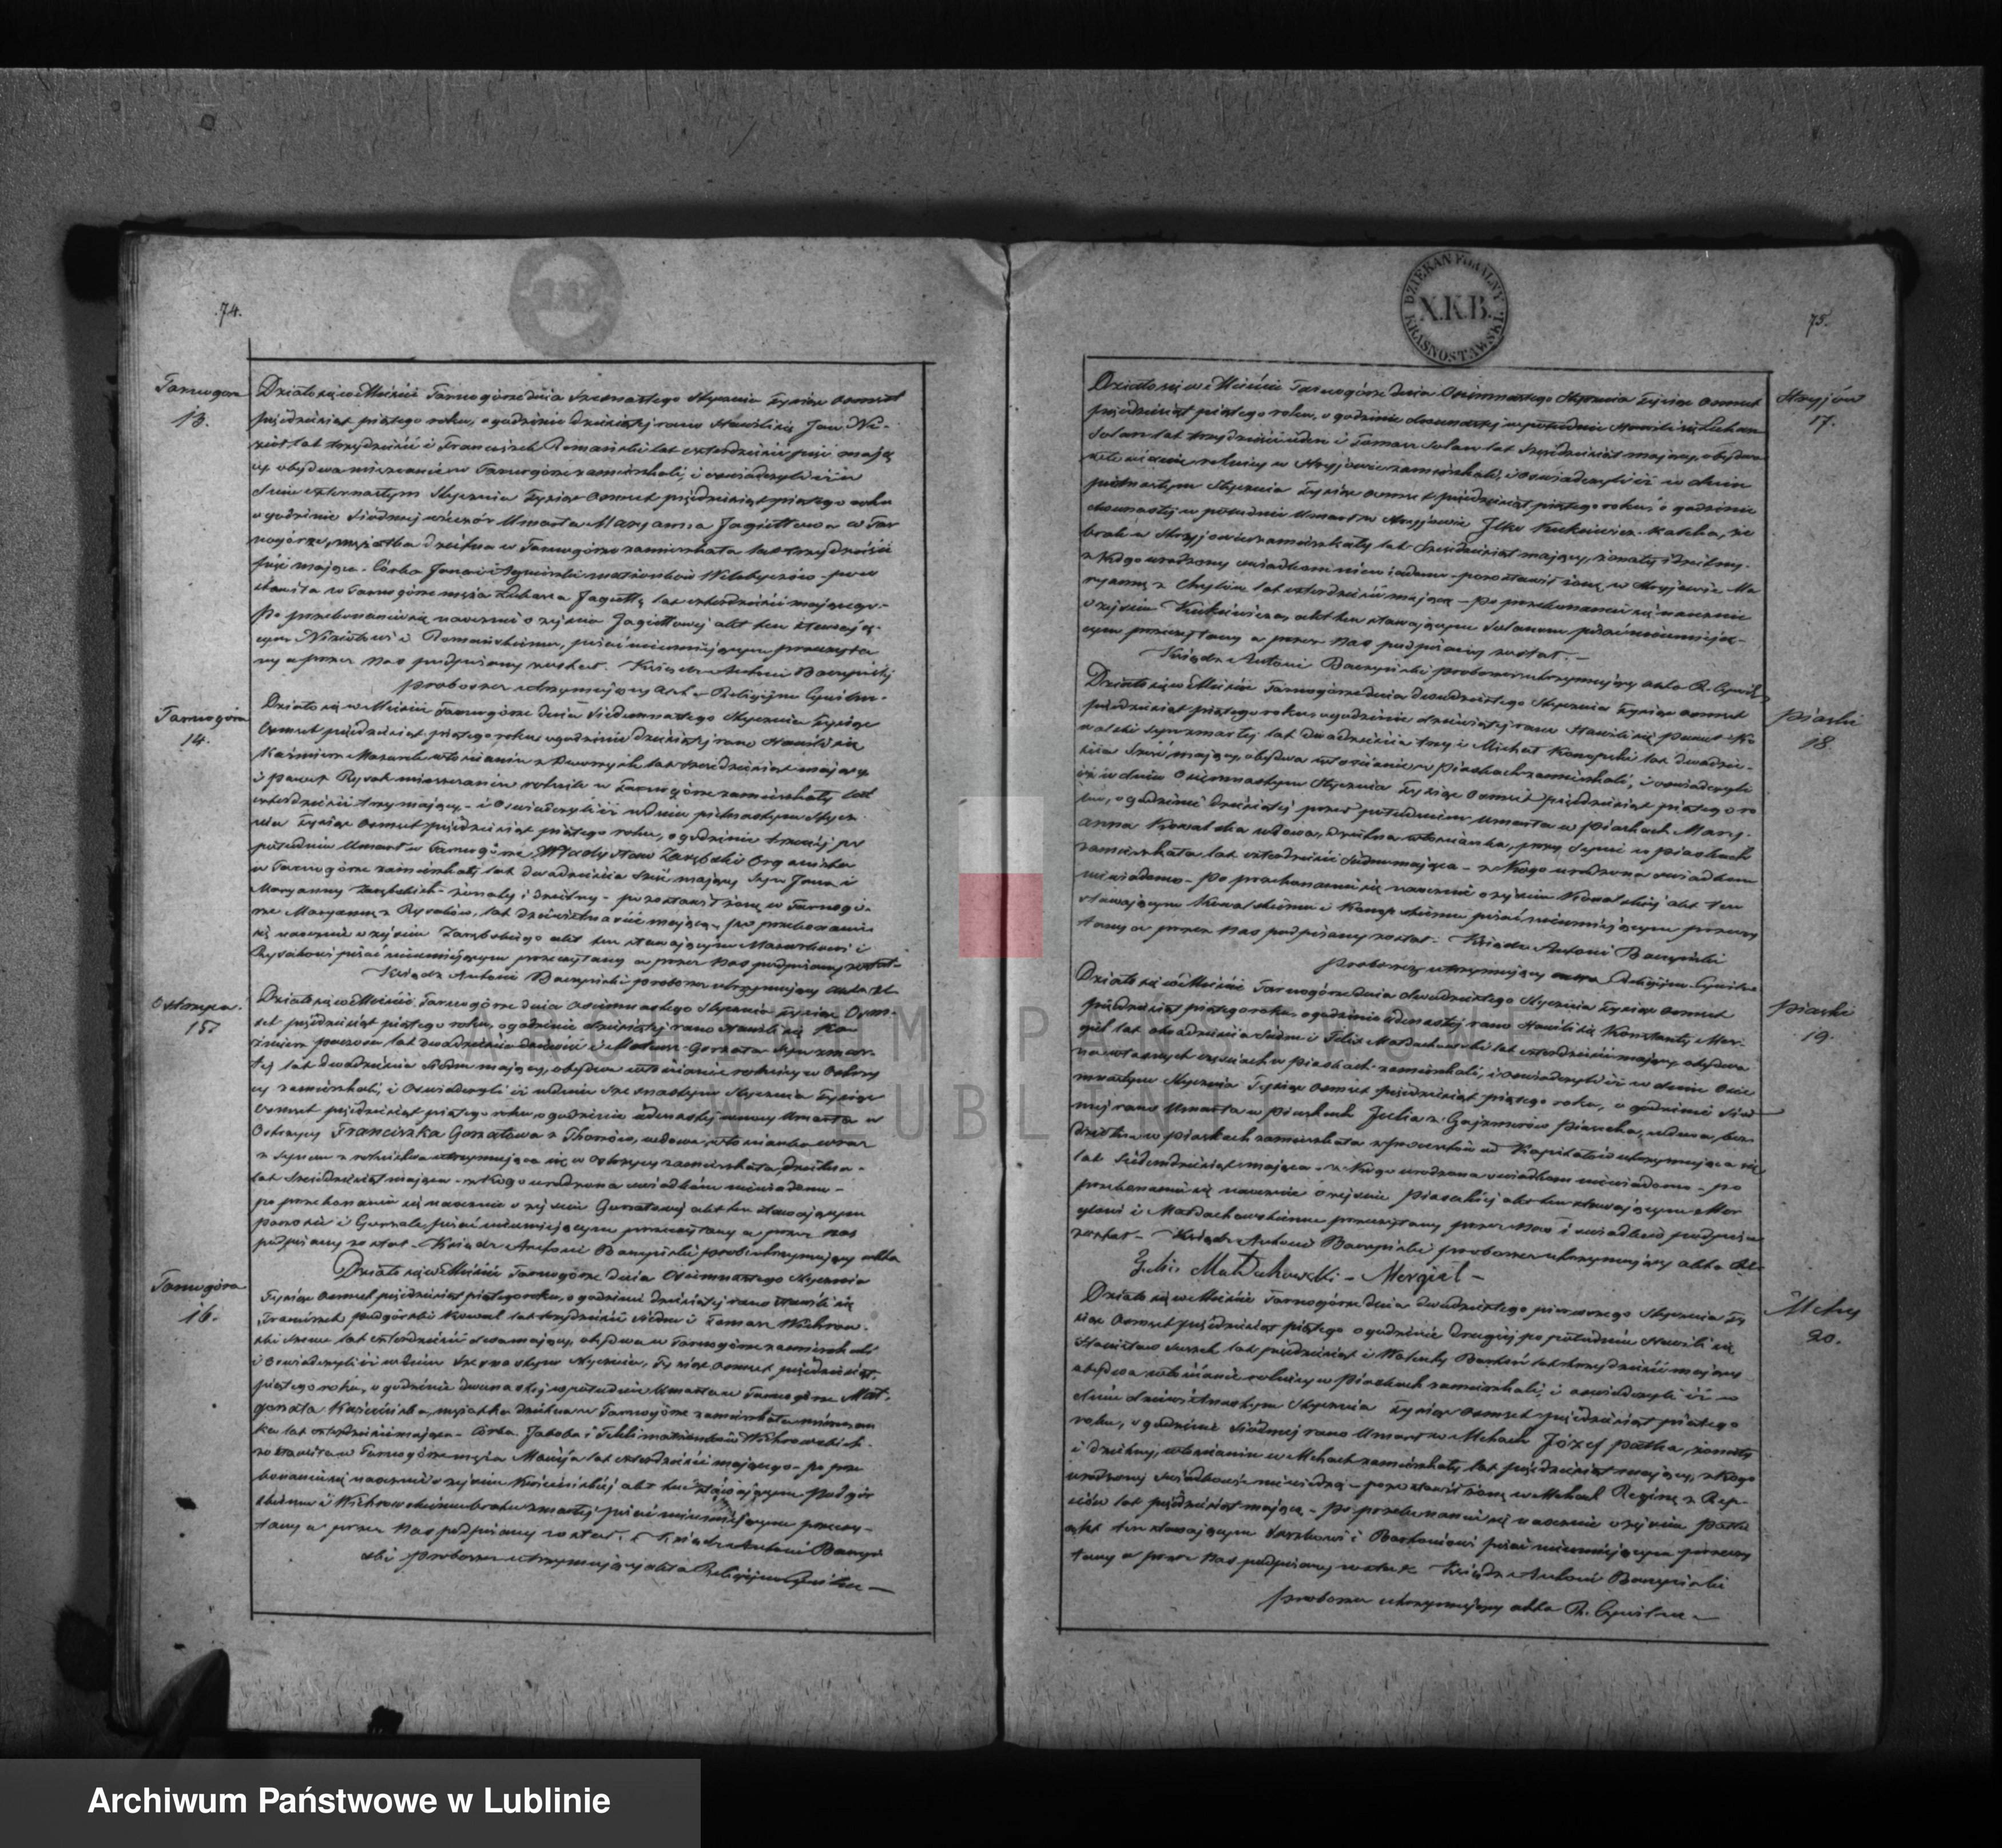 74.
Tarnogóra
13.
Działo się w Mieście Tarnogórze dnia Szesnastego Stycznia Tysiąc Osmset
pięćdziesiąt piątego roku, o godzinie dziesiątej rano Stawili się Jan
lat trzydzieści i Franciszek Romański lat czterdzieści pięć mają
cy obydwa mieszczanie w Tarnogórze zamieszkali, i oświadczyli iż w
dniu czternastym Stycznia Tysiąc Osmset pięćdziesiąt piątego roku
o godzinie Siódmej wieczór Umarła Maryanna Jagiełłowa w Tar
nogórze, mężatka dzietna w Tarnogórze zamieszkała lat trzydzieści
pięć mająca. Córka Jana i Agnieszki małżonków
stawiła w Tarnogórze męża Łukasza Jagiełłę lat czterdzieści mającego.
Po przekonaniu się naocznie o zejściu Jagiełłowej akt ten stawają-
cym i Romańskiemu, pisać nieumiejącym przeczyta
ny a przez Nas podpisany został. Ksiądz Antoni Baczyński
proboszcz utrzymujący akta Religijno Cywilne.
Tarnogóra
14.
Działo się w Mieście Tarnogórze dnia Siedemnastego Stycznia Tysiąc
Osmset pięćdziesiąt piątego roku o godzinie dziesiątej rano Stawili się
Kaźmierz Mazurek włościanin z lat sześćdziesiąt mający
i Paweł Rysak mieszczanin rolnik w Tarnogórze zamieszkały lat
czterdzieści trzy mający, i Oświadczyli iż w dniu piętnastym Stycz
nia Tysiąc Osmset pięćdziesiąt piątego roku, o godzinie trzeciej po
południu Umarł w Tarnogórze Władysław Zarębski Organista
w Tarnogórze zamieszkały lat dwadzieścia sześć mający Syn Jana i
Maryanny Zarębskich żonaty i dzietny pozostawił żonę w Tarnogó-
rze Maryannę z Rysaków, lat dziewiętnaście mającą, po przekonaniu
się naocznie o zejściu Zarębskiego akt ten stawającym Mazurkowi i
Rysakowi pisać nieumiejącym przeczytany a przez Nas podpisany został
Ksiądz Antoni Baczyński proboszcz utrzymujący akta
Ostrzyca.
15.
Działo się w Mieście Tarnogórze dnia Osiemnastego Stycznia Tysiąc Osm-
set pięćdziesiąt piątego roku, o godzinie dziesiątej rano Stawili się Ka
zimierz lat dwadzieścia dziewięć i Mateusz Gorzata Syn zmar-
łej lat dwadzieścia siedm mający, obydwa włościanie rolnicy w Ostrzy
cy zamieszkali, i Oświadczyli iż w dniu Szesnastym Stycznia Tysiąc
Osmset pięćdziesiąt piątego roku, o godzinie jedenastej Umarła w
Ostrzycy Franciszka Gorzatowa z wdowa, włościanka wraz
z Synem z rolnictwa utrzymująca się w Ostrzycy zamieszkała, dzietna
lat sześćdziesiąt mająca z kogo urodzona świadkom niewiadomo
po przekonaniu się naocznie o zejściu Gorzatowej akt ten stawającym
i pisać nieumiejącym przeczytany a przez nas
podpisany został. Ksiądz Antoni Baczyński prob: utrzymujący akta
Tarnogóra
16.
Działo się w Mieście Tarnogórze dnia Osiemnastego Stycznia
Tysiąc Osmset pięćdziesiąt piątego roku, o godzinie dziesiątej rano Stawili się
Franciszek Podgórski Kowal lat trzydzieści siedm i Tomasz Wichrow-
ski Szewc lat czterdzieści dwa mający, obydwa w Tarnogórze zamieszkali
i oświadczyli iż w dniu Szesnastym Stycznia, Tysiąc Osmset pięćdziesiąt
piątego roku, o godzinie dwunastej w południe Umarła w Tarnogórze Mał-
gorzata mężatka dzietna w Tarnogórze zamieszkała mieszczan
ka lat czterdzieści mająca. Córka Jakóba i Tekli małżonków Wichrowskich.
zostawiła w Tarnogórze męża Macieja lat czterdzieści mającego po prze
konaniu się naocznie o zejściu akt ten stawającym Podgór
skiemu i Wichrowskiemu bratu zmarłej pisać nieumiejącym przeczy-
tany a przez Nas podpisany został. Ksiądz Antoni Baczyń
ski proboszcz utrzymujący akta Religijno Cywilne
DZIEKAN FORALNY
X.K.B.
KRASNOSTAWSKI.
75.
Stryjów
17.
Działo się w Mieście Tarnogórze dnia Osiemnastego Stycznia Tysiąc Osmset
pięćdziesiąt piątego roku, o godzinie dwunastej w południe Stawili się
lat trzydzieści jeden i Tomasz lat sześćdziesiąt mający, obydwa
włościanie rolnicy w Stryjowie zamieszkali, i oświadczyli iż w dniu
piętnastym Stycznia Tysiąc Osmset pięćdziesiąt piątego roku, o godzinie
dwunastej w południe Umarł w Stryjowie Ilko Kukiewicz Kaleka, że
brak w Stryjowie zamieszkały lat sześćdziesiąt mający, żonaty i dzietny.
z kogo urodzony świadkom niewiadomo pozostawił żonę w Stryjowie Ma
ryannę z lat czterdzieści mającą po przekonaniu się naocznie
o zejściu Kukiewicza, akt ten stawającym pisać nieumieją-
cym przeczytany a przez Nas podpisany został.
Ksiądz Antoni Baczyński proboszcz utrzymujący akta R. Cywilne
Piaski
18.
Działo się w Mieście Tarnogórze dnia dwudziestego Stycznia Tysiąc Osmset
pięćdziesiąt piątego roku o godzinie dziewiątej rano Stawili się Paweł Ko
walski Syn zmarłej lat dwadzieścia trzy i Michał Konopski lat dwadzie-
ścia sześć mający, obydwa włościanie w Piaskach zamieszkali, i oświadczyli
iż w dniu Osiemnastym Stycznia Tysiąc Osmset pięćdziesiąt piątego ro
ku, o godzinie dziesiątej przed południem Umarła w Piaskach Mary-
anna Kowalska wdowa, dzietna włościanka, przy Synie w Piaskach
zamieszkała lat czterdzieści siedm mająca z kogo urodzona świadkom
niewiadomo. Po przekonaniu się naocznie o zejściu Kowalskiej akt ten
stawającym Kowalskiemu i Konopskiemu pisać nieumiejącym przeczy
tany a przez Nas podpisany został. Ksiądz Antoni Baczyński
proboszcz utrzymujący akta Religijno Cywilne
Piaski
19.
Działo się w Mieście Tarnogórze dnia dwudziestego Stycznia Tysiąc Osmset
pięćdziesiąt piątego roku, o godzinie jedenastej rano Stawili się Konstanty Mer-
giel lat dwadzieścia siedm i Felix Małdachowski lat czterdzieści mający, obydwa
na własnych częściach w Piaskach zamieszkali, i oświadczyli iż w dniu Osie
mnastym Stycznia Tysiąc Osmset pięćdziesiąt piątego roku, o godzinie siód
mej rano Umarła w Piaskach Julia z Piasecka, wdowa, bez
dzietna w Piaskach zamieszkała z procentów od Kapitałów utrzymująca się
lat siedmdziesiąt mająca z kogo urodzona świadkom niewiadomo po
przekonaniu się naocznie o zejściu Piaseckiej akt ten stawającym Mer
glowi i Małdachowskiemu przeczytany przez Nas i świadków podpisany
został. Ksiądz Antoni Baczyński proboszcz utrzymujący akta
Felix Małdachowski - Mergiel -
Mchy
20.
Działo się w Mieście Tarnogórze dnia dwudziestego pierwszego Stycznia Ty
siąc Osmset pięćdziesiąt piątego o godzinie drugiej po południu Stawili się
Stanisław lat pięćdziesiąt i Walenty lat trzydzieści mający
obydwa włościanie rolnicy w Piaskach zamieszkali, i oświadczyli iż w
dniu dziewiętnastym Stycznia Tysiąc Osmset pięćdziesiąt piątego
roku, o godzinie siódmej rano Umarł w Mchach Józef Pałka, żonaty
i dzietny, włościanin w Mchach zamieszkały lat pięćdziesiąt mający, z kogo
urodzony świadkowie niewiedzą pozostawił żonę w Mchach Reginę z
lat pięćdziesiąt mającą. Po przekonaniu się naocznie o zejściu Pałki
akt ten stawającym i pisać nieumiejącym przeczy
tany a przez Nas podpisany został. Ksiądz Antoni Baczyński
proboszcz utrzymujący akta R. Cywilne
ARCHIWUM PAŃSTWOWE
W LUBLINIE
Archiwum Państwowe w Lublinie